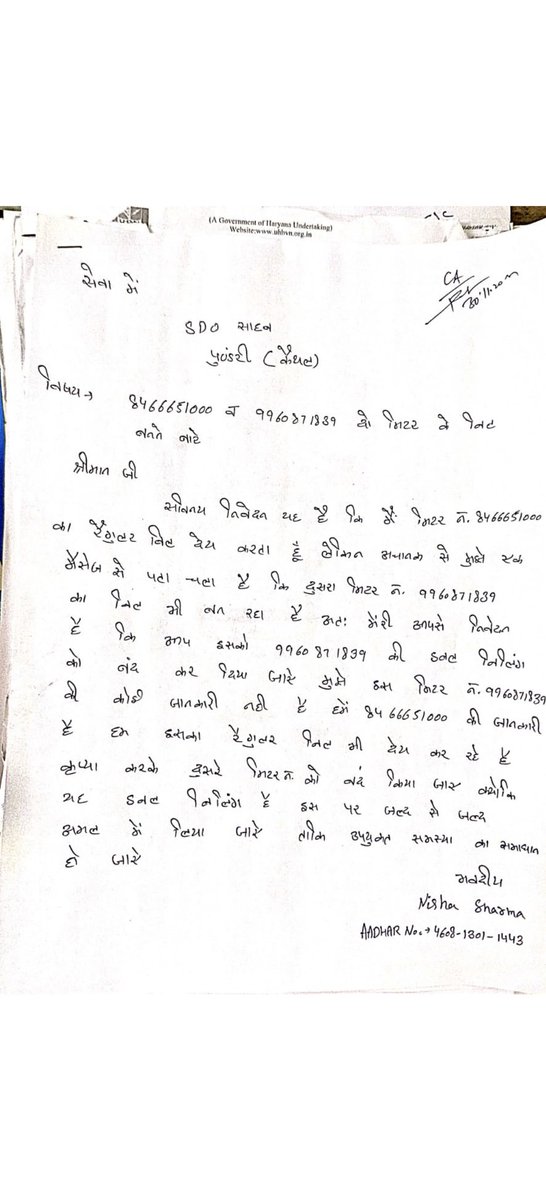 (A Government of Haryana Undertaking)
Website:www.uhbvn.org.in
सेवा में
CA
30.11.20
SDO साहब
पुण्डरी (कैथल)
विषय→ 8466651000 व 9960871839 दो मिटर के बिल
बनने बारे
श्रीमान जी
सविनय निवेदन यह है कि मैं मिटर नं. 8466651000
का रैगुलर बिल देय करता हूँ लेकिन अचानक से मुझे एक
मैसेज से पता चला है कि दुसरा मिटर नं. 9960871839
का बिल भी बन रहा है अतः मेरी आपसे निवेदन
है कि आप इसको 9960871839 की डबल बिलिंग
को बंद कर दिया जाऐ मुझे इस मिटर नं. 9960871839
की कोई जानकारी नही है हमें 8466651000 की जानकारी
है हम इसका रैगुलर बिल भी देय कर रहे है
कृप्या करके दुसरे मिटर नं को बंद किया जाऐ क्योकि
यह डबल बिलिंग है इस पर जल्द से जल्द
अमल में लिया जाऐ ताकि उपयुक्त समस्या का समाधान
हो जाऐ
भवदीय
Nisha Sharma
AADHAR No.→ 4608-1301-1443